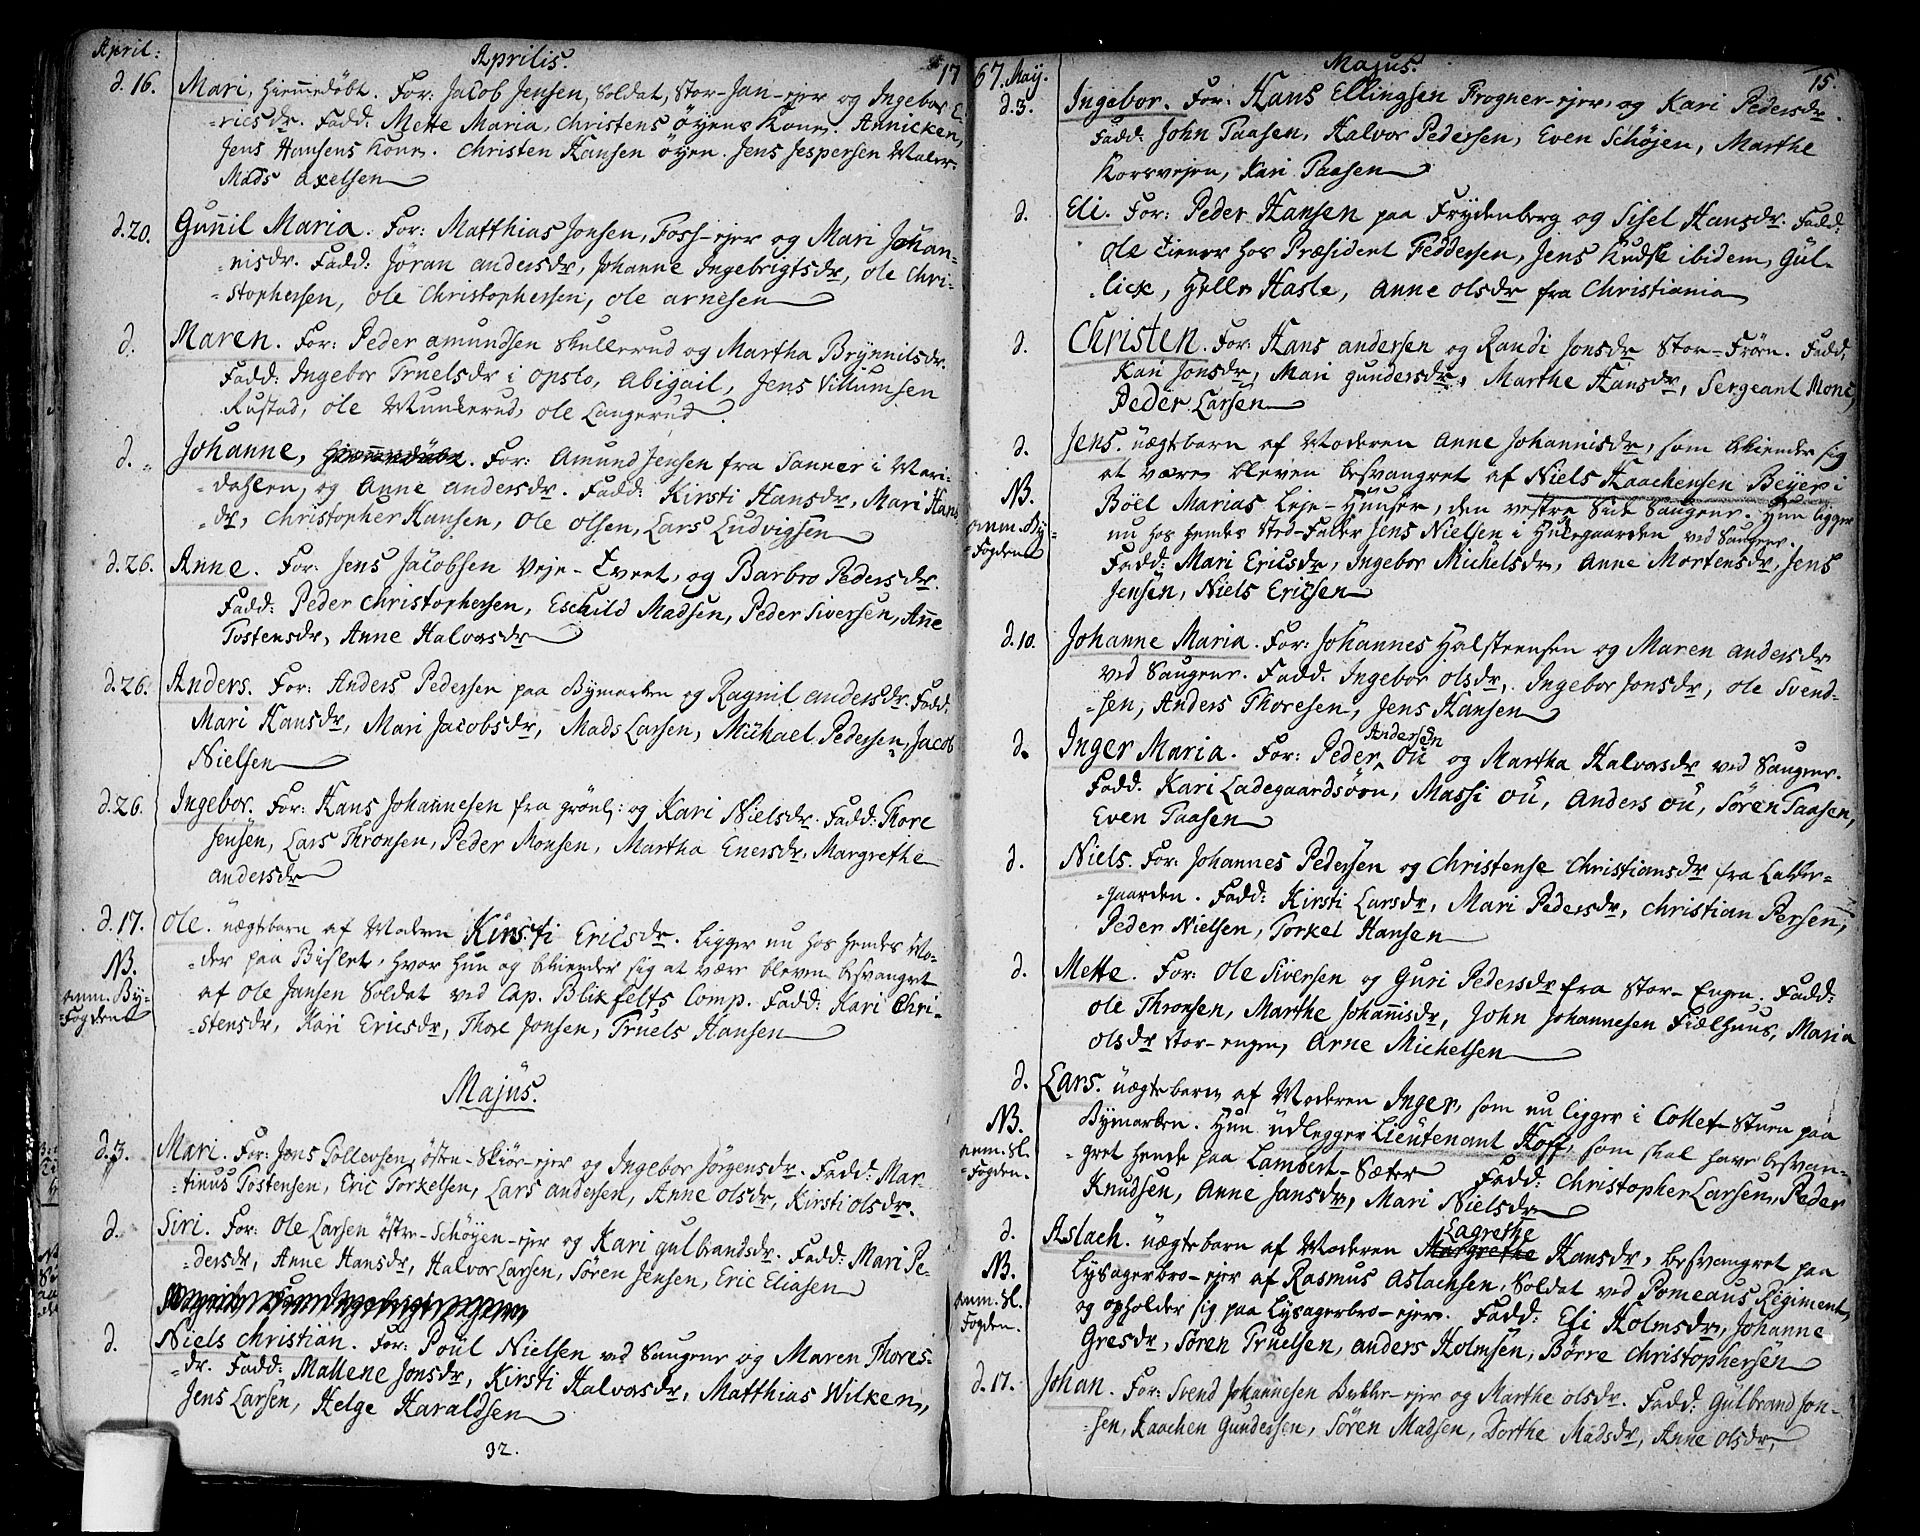 April:
Aprilis.
17
d. 16. Mari, Hiemmedöbt. For: Jacob Jensen, Soldat, Stor-Jan-ejer og Ingebor E-
-ricsdr. Fadd: Mette Maria, Christens Öyens Kone. Annicken,
Jens Hansens Kone. Christen Hansen Öyen. Jens Jespersen Maler.
Mads Axelsen
d. 20. Gunnil Maria. For: Matthias Jonsen, Foss-ejer og Mari Johan-
-nisdr. Fadd: Jöran Andersdr, Johanne Ingebrigtsdr, Ole Chri-
-stophersen, Ole Christophersen, Ole Arnesen
d. Maren. For: Peder Amundsen Skullerud og Martha Brynnilsdr.
Fadd: Ingebor Truelsdr i Opslo, Abigail, Jens Villumsen
Rustad, Ole Munkerud, Ole Langerud.
d. Johanne, Hiemmedöbt. For: Amund Jensen fra Sanner i Mari-
-dahlen, og Anne Andersdr. Fadd: Kirsti Hansdr, Mari Hans
-dr, Christopher Hansen, Ole Olsen, Lars Ludvigsen
d. 26. Anne. For: Jens Jacobsen Veje-Tvert, og Barbro Pedersdr.
Fadd: Peder Christophersen, Eschild Madsen, Peder Siversen, Anne
Tostensdr, Anne Halvorsdr
d. 26. Anders. For: Anders Pedersen paa Bymarken og Ragnil Andersdr. Fadd:
Mari Hansdr, Mari Jacobsdr, Mads Larsen, Michael Pedersen, Jacob
Nielsen
d. 26. Ingebor. For: Hans Johannesen fra Grönl: og Kari Nielsdr. Fadd: Thore
Jensen, Lars Thronsen, Peder Monsen, Martha Enersdr, Margrethe
Andersdr
d. 17. Ole. uægtebarn af Moderen Kirsti Ericsdr. Ligger nu hos hendes Mo-
NB. -der paa Bislet, hvor hun og bekiender sig at være bleven besvangret
anm. By- af Ole Jansen Soldat ved Cap. Blikfelts Comp. Fadd: Kari Chri-
-Fogden -stensdr, Kari Ericsdr, Thore Jonsen, Truels Hansen
Majus.
d. 3. Mari. For: Jens Pollersen, östre-Skiör-ejer og Ingebor Jörgensdr. Fadd: Mar-
-tinus Tostensen, Eric Torkelsen, Lars Andersen, Anne Olsdr, Kirsti Olsdr.
d. Siri. For: Ole Larsen östre-Schöyen-ejer og Kari Gulbrandsdr. Fadd: Mari Pe-
-dersdr, Anne Hansdr, Halvor Larsen, Sören Jensen, Eric Eliasen
d. Niels Christian. For: Poul Nielsen ved Saugene og Maren Thores-
-dr. Fadd: Mallene Jonsdr, Kirsti Halvorsdr, Matthias Wilken,
Jens Larsen, Helge Haraldsen
32.
67. May.
Majus.
15.
d. 3. Ingebor. For: Hans Ellingsen Frogner-ejer, og Kari Pedersdr.
Fadd: John Taasen, Halvor Pedersen, Even Schöjen, Marthe
Korsvejen, Kari Taasen
d. Eli. For: Peder Hansen paa Frydenberg og Sisel Hansdr. Fadd:
Ole Tiener hos Præsident Feddersen, Jens Kudsk ibidem, Gul-
-lick, Helle Hasle, Anne Olsdr fra Christiania
d. Christen. For: Hans Andersen og Randi Jonsdr Stor-Frön. Fadd:
Kari Jonsdr, Mari Gundersdr, Marthe Hansdr, Sergeant Mone,
Peder Larsen
d. Jens. uægtebarn af Moderen Anne Johannisdr, som bekiender sig
NB. at være bleven besvangret af Niels Haachensen Beyer i
Böel Marias Leje-Huuser, den vestre Side Saugene. Hun ligger
anm. By- nu hos hendes Sted-Fader Jens Nielsen i Hulegaarden ved Saugene.
-Fogden Fadd: Mari Ericsdr, Ingebor Michelsdr, Anne Mortensdr, Jens
Jensen, Niels Ericsen
d. 10. Johanne Maria. For: Johannes Halsteensen og Maren Andersdr
ved Saugene. Fadd. Ingebor Olsdr, Ingebor Jonsdr, Ole Svend-
-sen, Anders Thoresen, Jens Hansen
d. Inger Maria. For: Peder Andersen Ou og Martha Halvorsdr ved Saugene.
Fadd. Kari Ladegaardsöen, Massi Ou, Anders Ou, Sören Taasen,
Even Taasen
d. Niels. For: Johannes Pedersen og Christense Christiansdr fra Lakker-
-gaarden. Fadd: Kirsti Larsdr, Mari Pedersdr, Christian Persen,
Peder Nielsen, Torkel Hansen
d. Mette. For: Ole Siversen og Guri Pedersdr fra Stor-Engen. Fadd:
Ole Thronsen, Marthe Johannisdr, John Johannesen Fiælhuus, Maria
Olsdr Stor-engen, Arne Michelsen
d. Lars. uægtebarn af Moderen Inger, som nu ligger i Collet-Stuen paa
NB. Bymarken. Hun udlegger Lieutenant Hoff, som skal have besvan-
anm. Sl. -gret hende paa Lambert-Sæter Fadd: Christopher Larsen, Peder
-Fogden. Knudsen, Anne Jansdr, Mari Nielsdr
d. Aslach. uægtebarn af Moderen Margrethe Lagrethe Hansdr, besvangret paa
NB. Lysagerbro-ejer af Rasmus Aslachsen, Soldat ved Pomeaus Regiment,
anm. Sl. og opholder sig paa Lysagerbro-ejer. Fadd: Eli Holmsdr, Johanne
Fogden. Gresdr, Sören Truelsen, Anders Holmsen, Börre Christophersen
d. 17. Johan. For: Svend Johannesen Bakke-ejer og Marthe Olsdr. Fadd: Gulbrand Jon-
-sen, Haachen Gundersen, Sören Madsen, Dorthe Madsdr, Anne Olsdr,